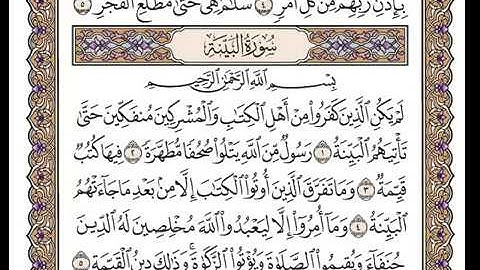 بِإِذْنِ رَبِّهِم مِّن كُلِّ أَمْرٍ ٤ سَلَٰمٌ هِىَ حَتَّىٰ مَطْلَعِ ٱلْفَجْرِ ٥
سُورَةُ البَيِّنَة
بِسْمِ ٱللَّهِ ٱلرَّحْمَٰنِ ٱلرَّحِيمِ
لَمْ يَكُنِ ٱلَّذِينَ كَفَرُوا۟ مِنْ أَهْلِ ٱلْكِتَٰبِ وَٱلْمُشْرِكِينَ مُنفَكِّينَ حَتَّىٰ
تَأْتِيَهُمُ ٱلْبَيِّنَةُ ١ رَسُولٌ مِّنَ ٱللَّهِ يَتْلُوا۟ صُحُفًا مُّطَهَّرَةً ٢ فِيهَا كُتُبٌ
قَيِّمَةٌ ٣ وَمَا تَفَرَّقَ ٱلَّذِينَ أُوتُوا۟ ٱلْكِتَٰبَ إِلَّا مِنۢ بَعْدِ مَا جَآءَتْهُمُ
ٱلْبَيِّنَةُ ٤ وَمَآ أُمِرُوٓا۟ إِلَّا لِيَعْبُدُوا۟ ٱللَّهَ مُخْلِصِينَ لَهُ ٱلدِّينَ
حُنَفَآءَ وَيُقِيمُوا۟ ٱلصَّلَوٰةَ وَيُؤْتُوا۟ ٱلزَّكَوٰةَ ۚ وَذَٰلِكَ دِينُ ٱلْقَيِّمَةِ ٥